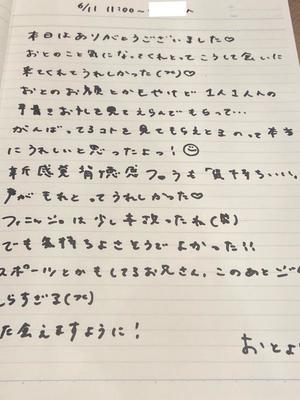 6/11 11:00〜
本日はありがとうございました♡
おとのこと気になってくれてこうして会いに
来てくれてうれしかった(;;)
おとのお顔とかもやけど1人1人の
写真をお礼を見てえらんでもらって…
がんばってるコトを見てもらえてるのって本当
にうれしいと思ったよっ!☺
新感覚背徳感フ□うも「気持ちいい」
声がもれとってうれしかった♡
フィニッシュは少し手強ったね(笑)
でも気持ちよさそうでよかった!!
スポーツとかもしてるお兄さん、このあとジ
しらすぎる(;;)
た会えますように!
おとよ